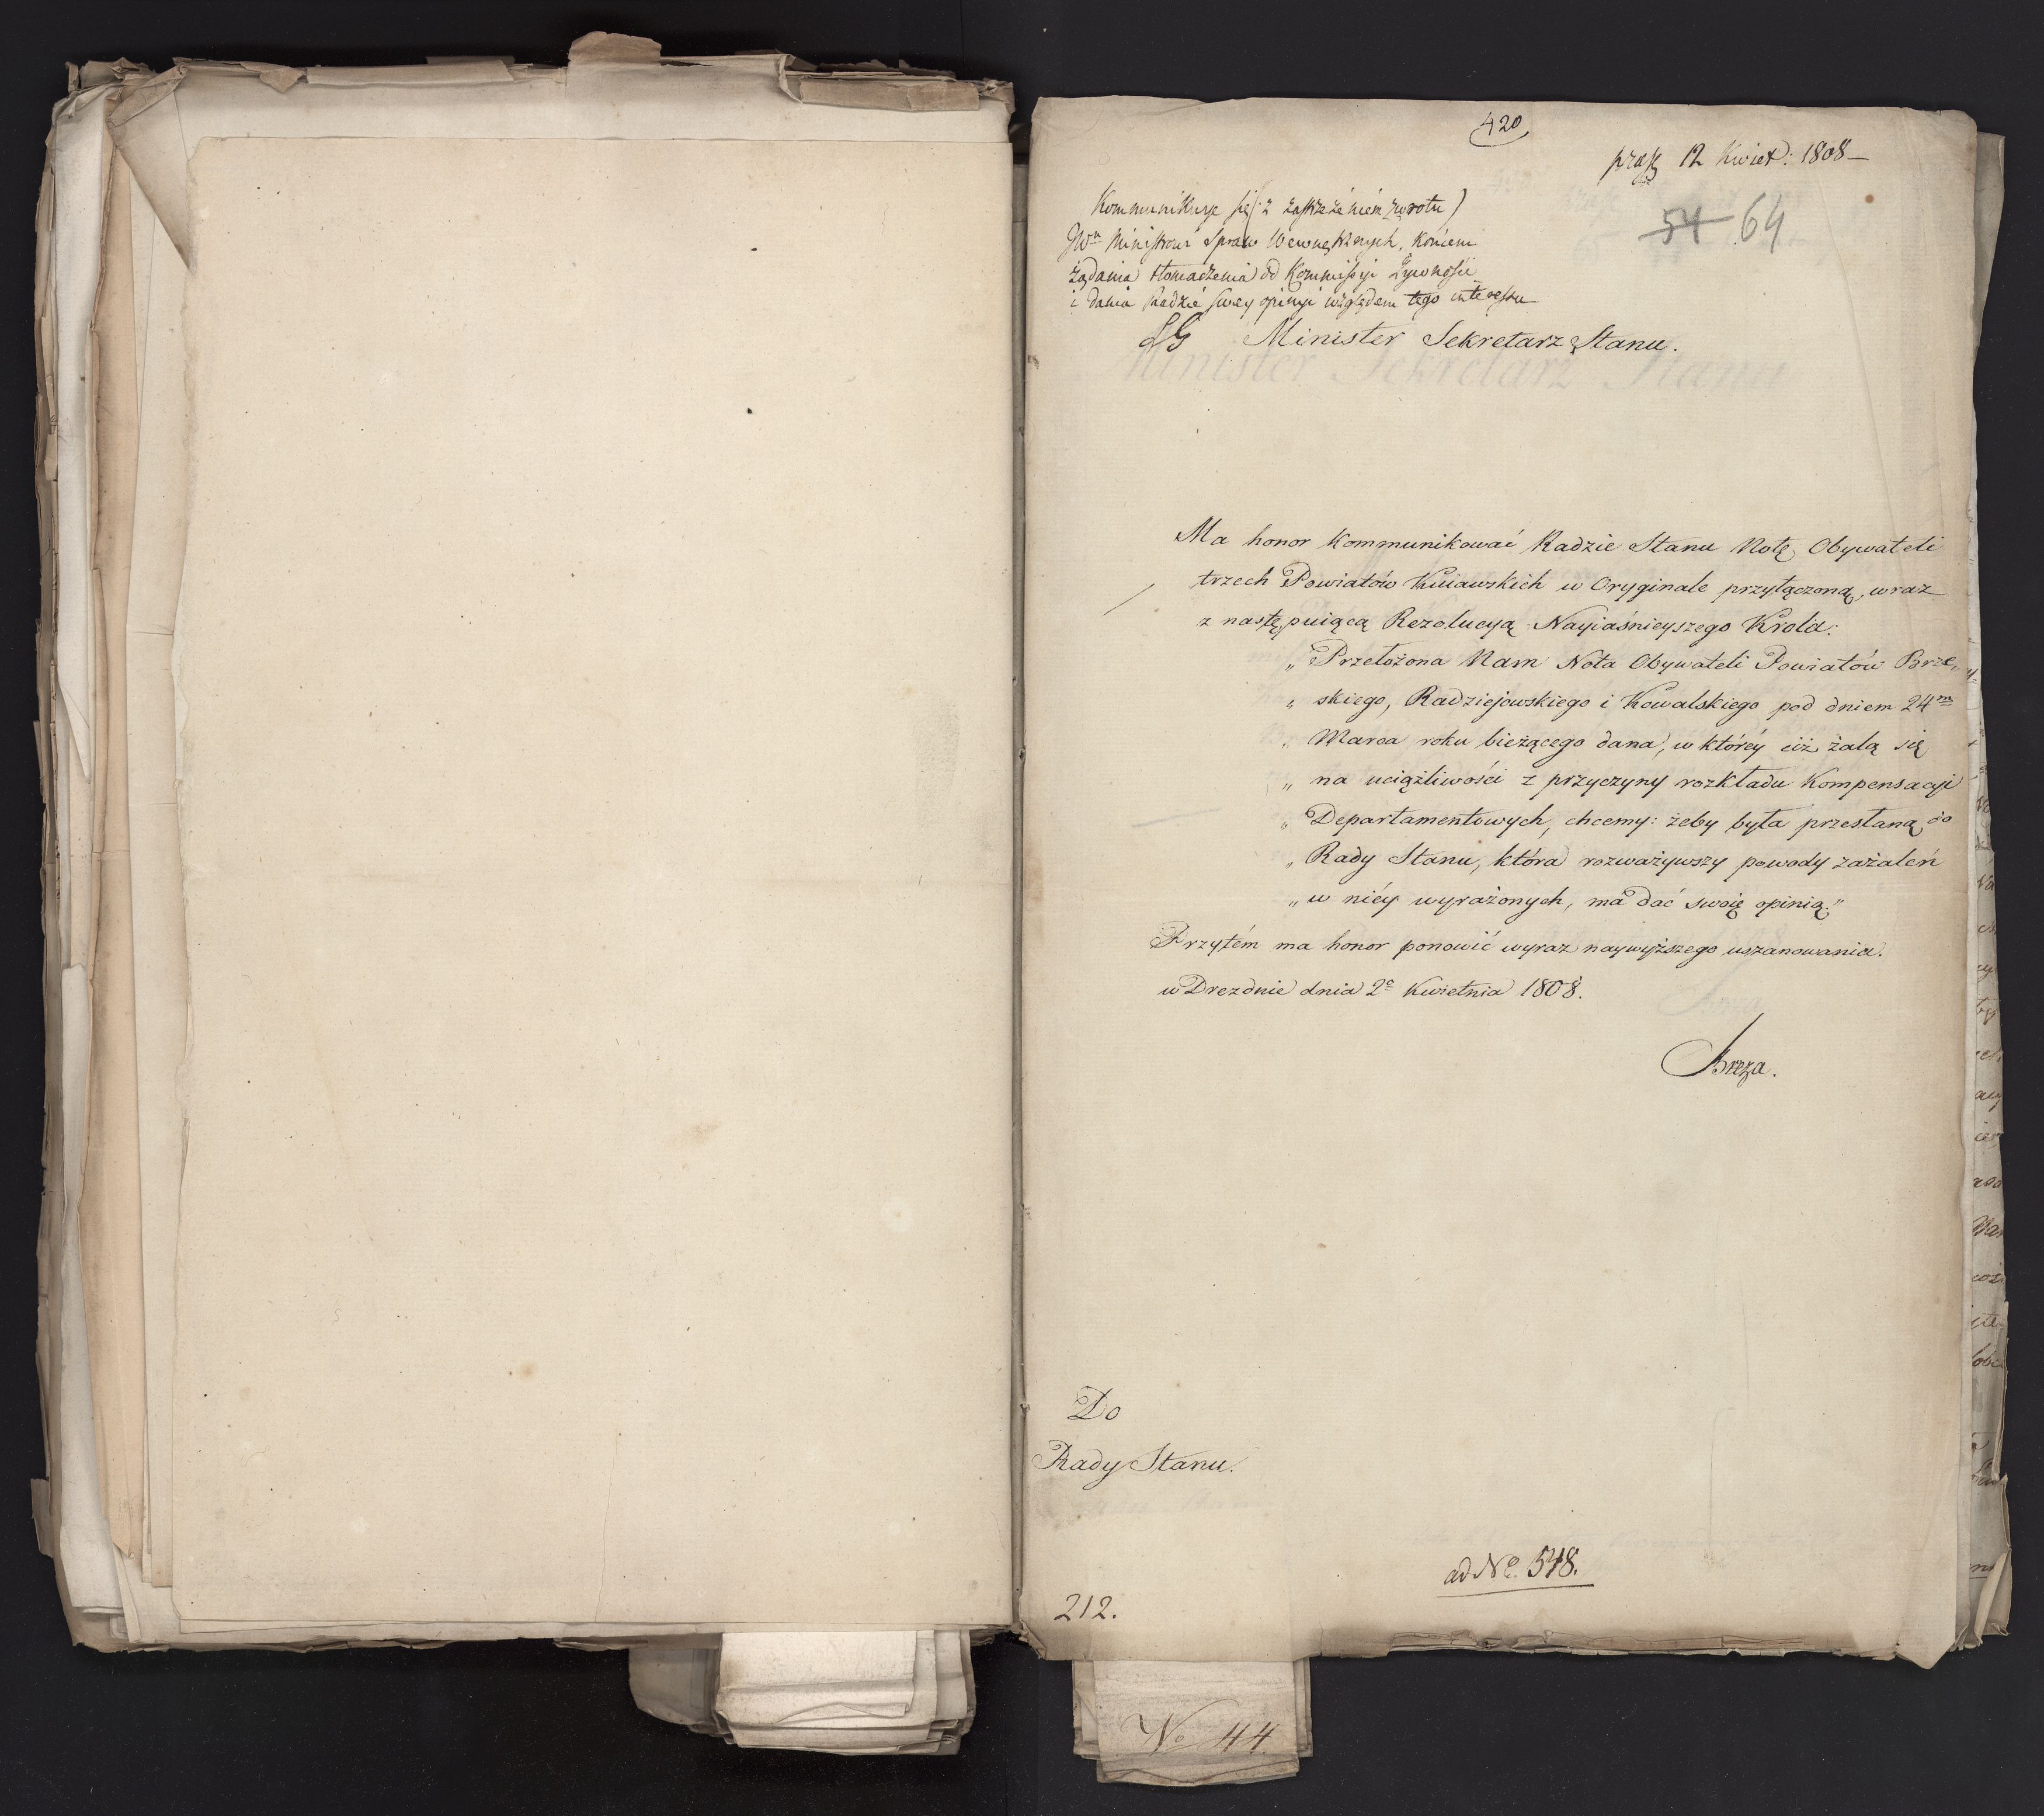 420
praes 12 Kwiet: 1808 —
54 64
Kommunikuje się (: z zastrzeżeniem zwrotu)
JWu Ministrowi Spraw Wewnętrznych, końcem
żądania tłomaczenia od Kommissyi Żywności
i dania Radzie swey opinyi względem tego interessu
Minister Sekretarz Stanu.
Ma honor kommunikować Radzie Stanu Notę Obywateli
trzech Powiatów Kuiawskich w Oryginale przyłączoną, wraz
z nastę,puiącą Rezolucyą Nayiaśnieyszego Króla:
„ Przełożona Nam Nota Obywateli Powiatów Brze„
„ skiego, Radziejowskiego i Kowalskiego pod dniem 24m
„ Marca roku bieżącego dana, w którey ciż żalą się
„ na uciążliwości z przyczyny rozkładu Kompensacyi
„ Departamentowych, chcemy: żeby była przesłaną do
„ Rady Stanu, która rozważywszy powody zażaleń
„ w niéy wyrażonych, ma dać swoię opinią."
Przytém ma honor ponowić wyraz naywyższego uszanowania.
w Dreznie dnia 2o Kwietnia 1808.
Breza.
Do
Rady Stanu.
ad No. 548.
212.
No 44.